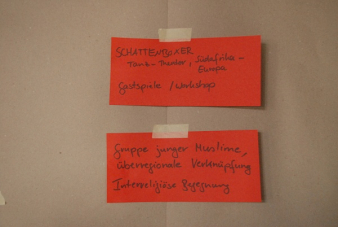 SCHATTENBILDER
Tanz-Theater, Südafrika -
Europa
Gastspiele / Workshop
Gruppe junger Muslime,
überregionale Verknüpfung
Interreligiöse Begegnung